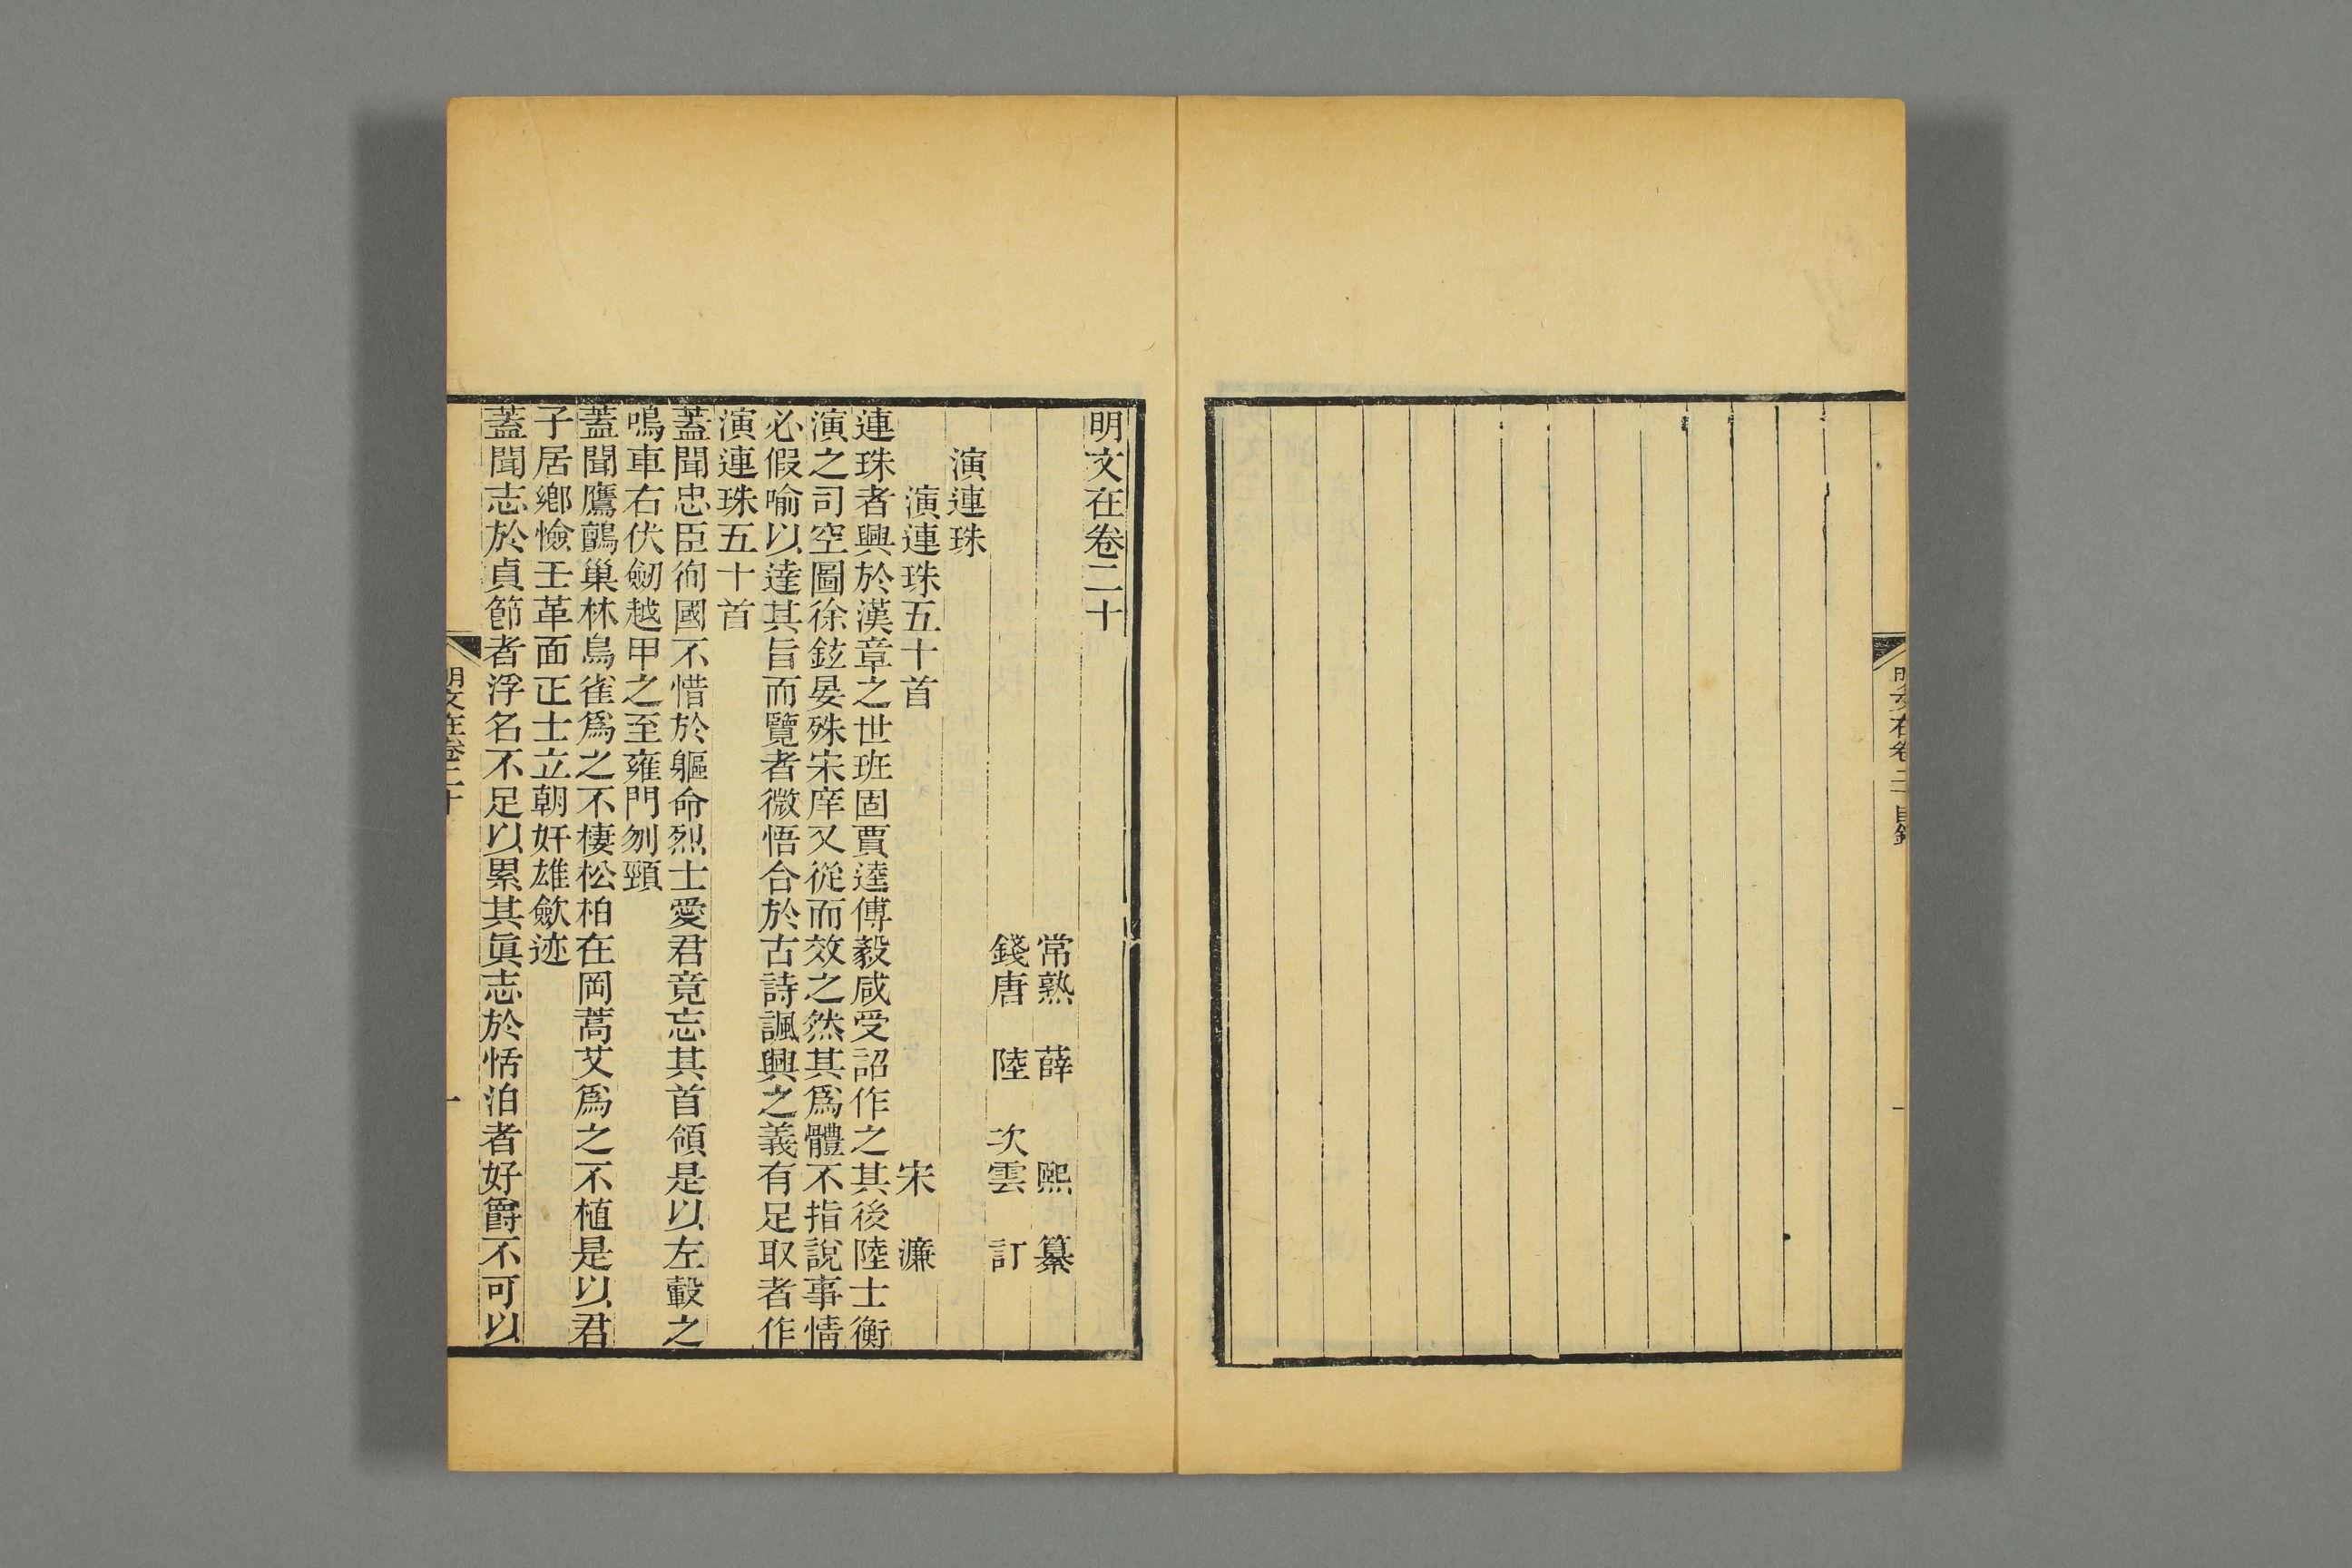 明文在卷二十目錄
一
明文在卷二十
常熟 薛 熙 纂
錢唐 陸 次雲 訂
演連珠
演連珠五十首 宋 濂
連珠者興於漢章之世班固賈逵傅毅咸受詔作之其後陸士衡
演之司空圖徐鉉晏殊宋庠又從而效之然其爲體不指說事情
必假喻以達其旨而覽者微悟合於古詩諷興之義有足取者作
演連珠五十首
蓋聞忠臣徇國不惜於軀命烈士愛君竟忘其首領是以左轂之
鳴車右伏劒越甲之至雍門刎頸
蓋聞鷹鸇巢林鳥雀爲之不棲松柏在岡蒿艾爲之不植是以君
子居鄉憸壬革面正士立朝奸雄歛迹
蓋聞志於貞節者浮名不足以累其眞志於恬泊者好爵不可以
明文在卷二十
一